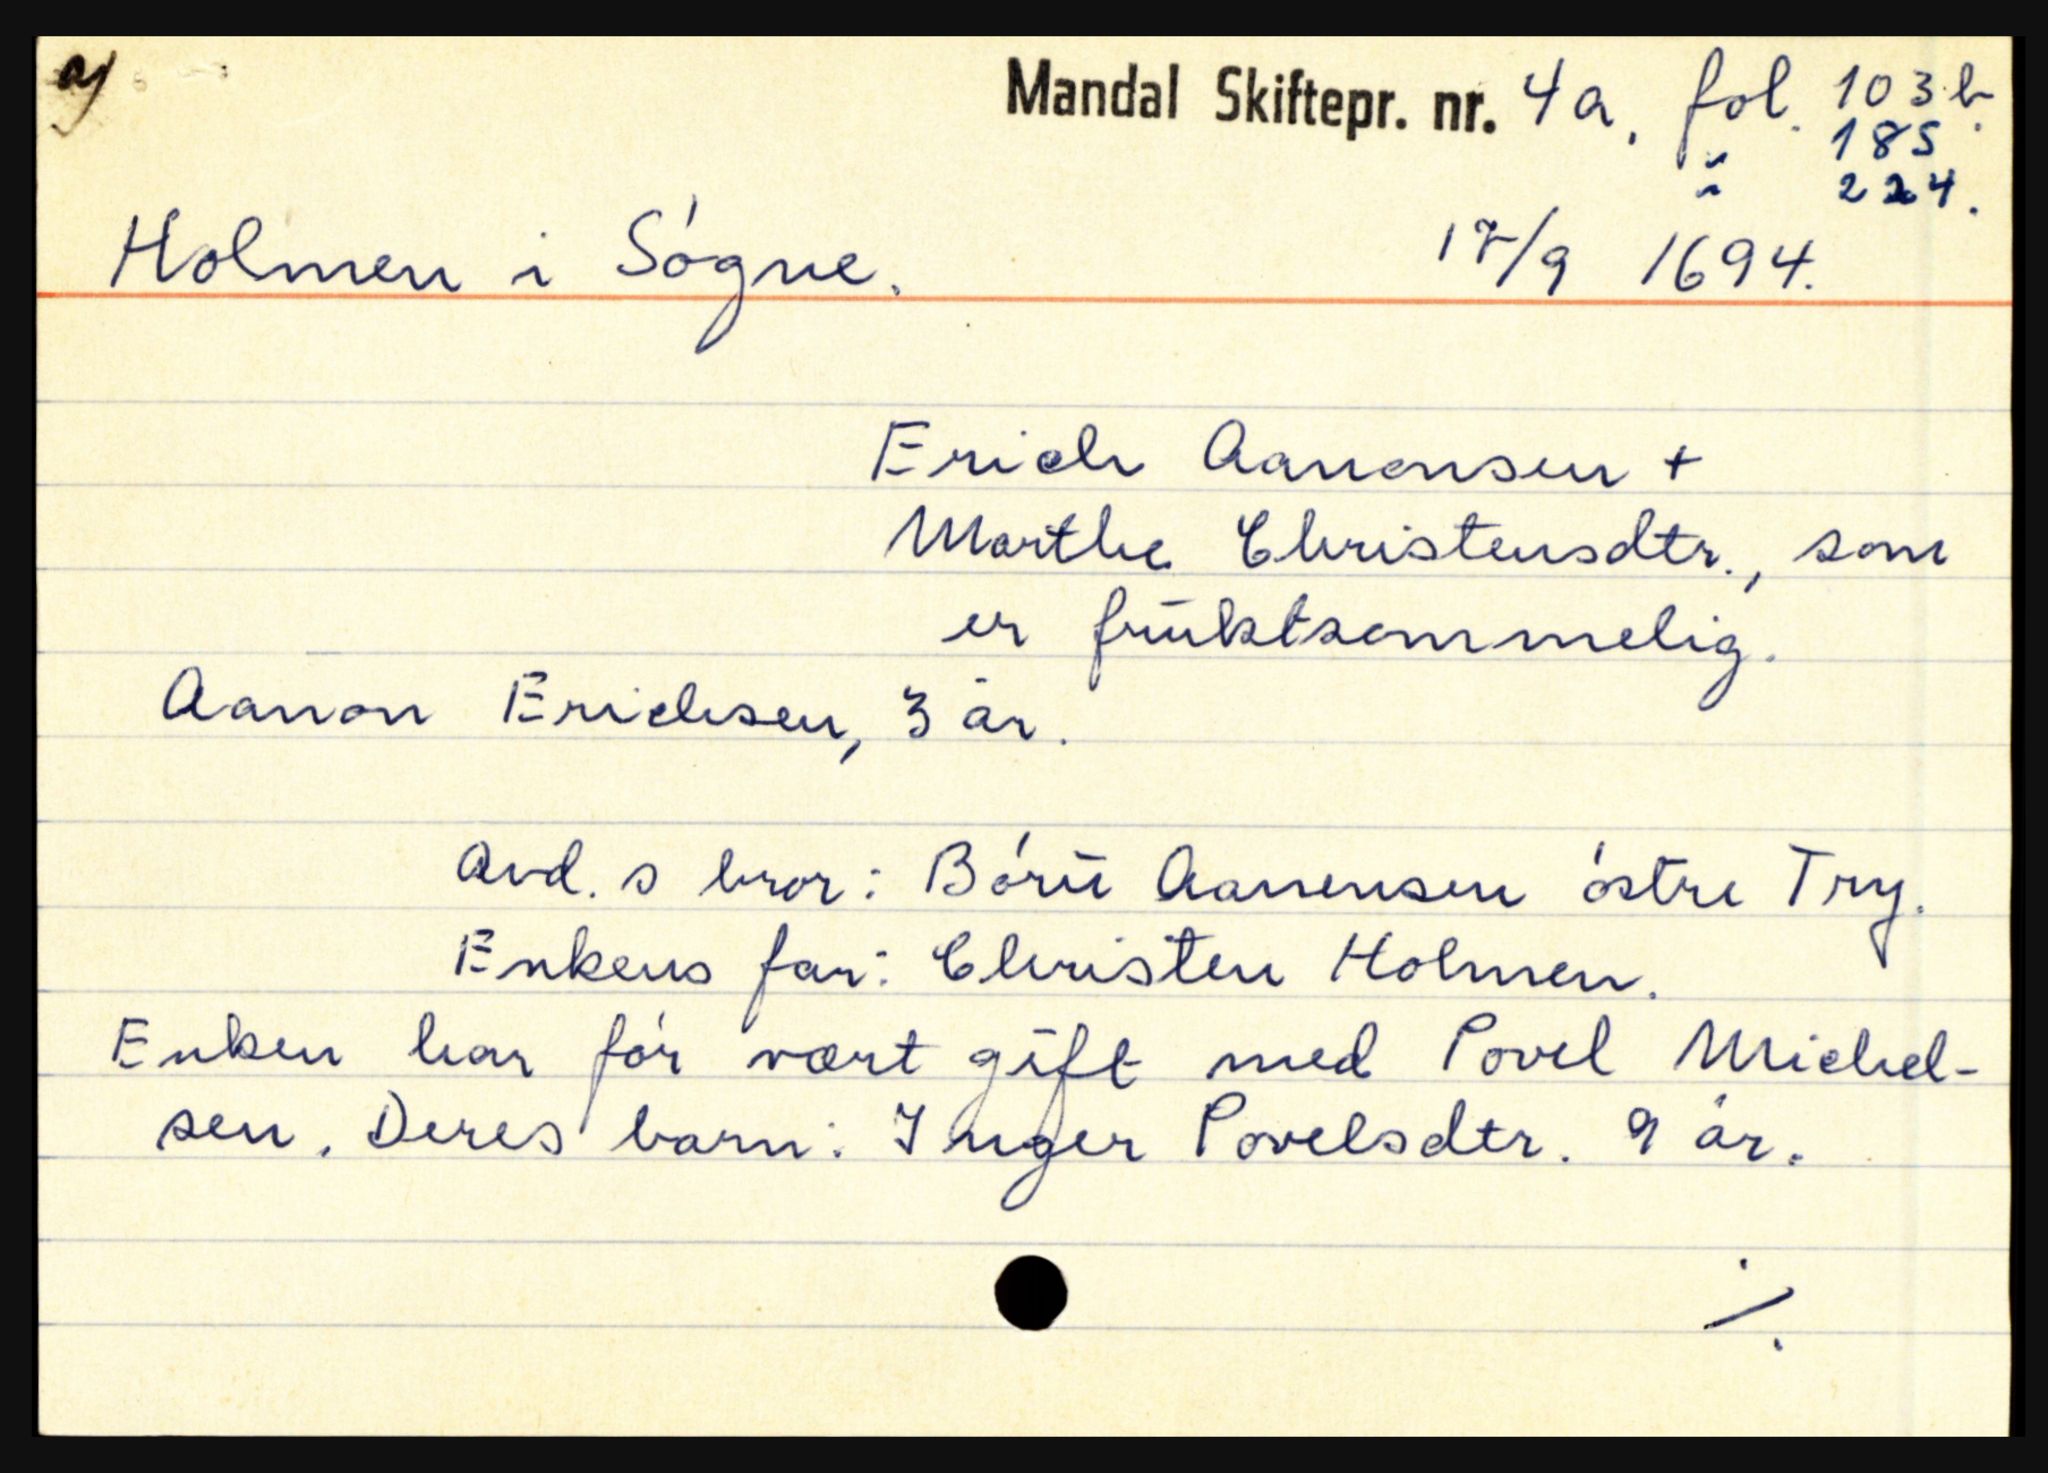 a)
Mandal Skiftepr. nr. 4a, fol. 103b.
" 185
" 224.
Holmen i Søgne. 17/9 1694.
Erich Aanonsen +
Marthe Christensdtr., som
er fruktsommelig.
Aanon Erichsen, 3 år.
Avd. s bror: Børü Aanensen østre Try.
Enkens far: Christen Holmen.
Enken har før vært gift med Povel Michel-
sen. Deres barn: Inger Povelsdtr. 9 år.
./.